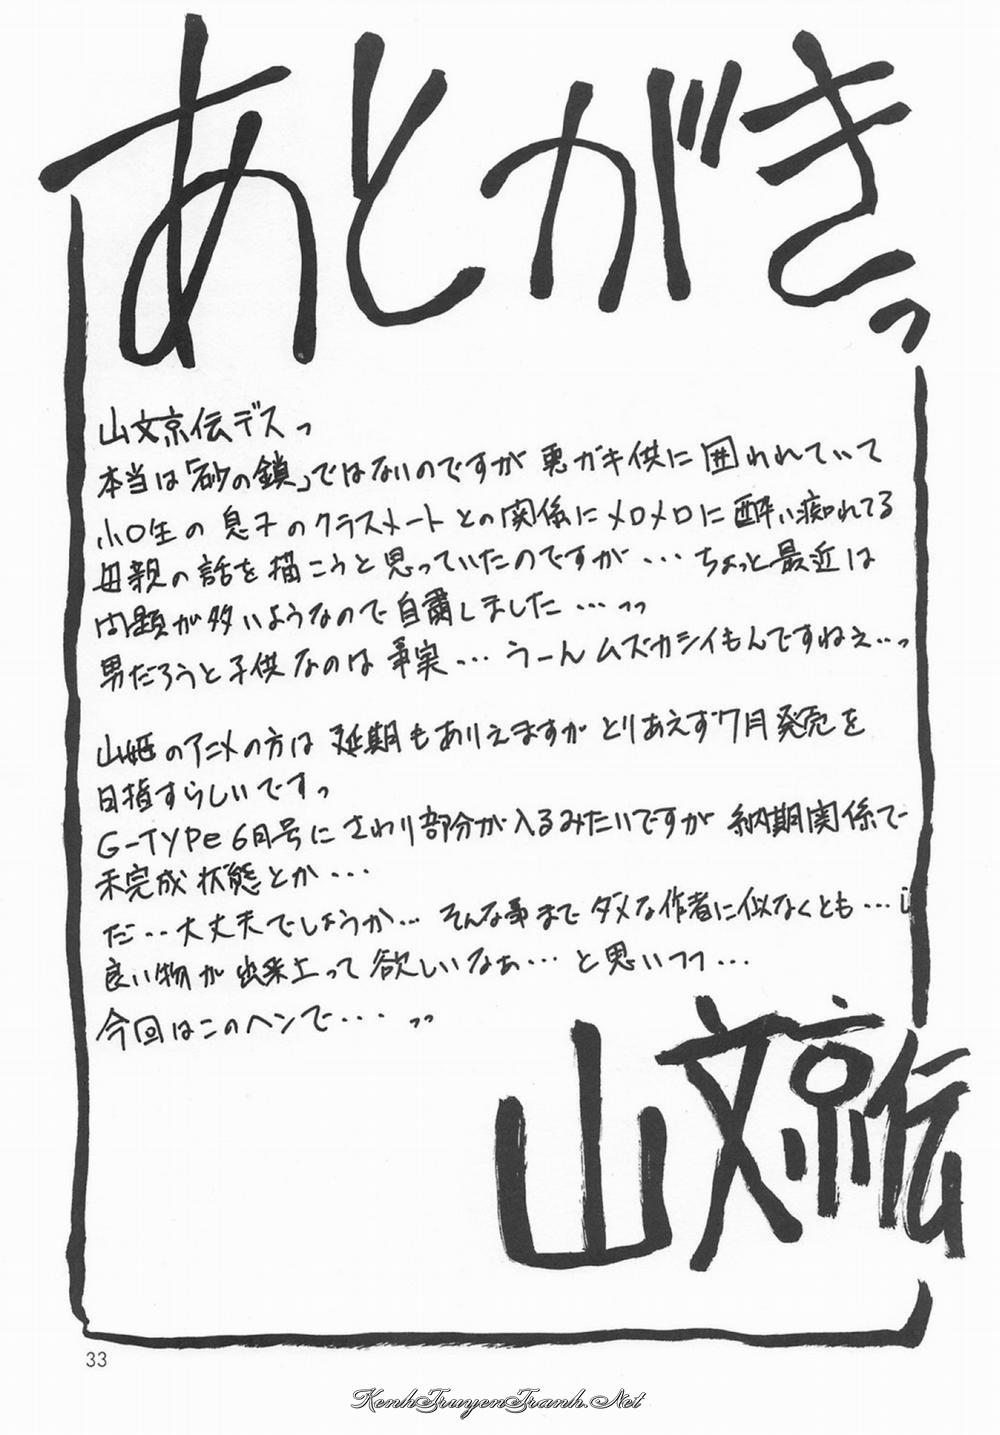 あとがきっ
山文京伝デスっ
本当は「砂の鎖」ではないのですが 悪ガキ供に囲われていて
小○生の息子のクラスメートとの関係にメロメロに酔い痴れてる
母親の話を描こうと思っていたのですが・・・ちょっと最近は
問題が多いようなので自粛しました・・・っっ
男だろうと子供なのは事実・・・うーんムズカシイもんですねぇ・・・っ
山姫のアニメの方は延期もありえますがとりあえず7月発売を
目指すらしいですっ
G-TYPe6月号にさわり部分が入るみたいですが納期関係で
未完成状態とか・・・
だ・・大丈夫でしょうか・・・そんな事までダメな作者に似なくとも・・・
良い物が出来上って欲しいなぁ・・・と思いつつ・・・
今回はこのヘンで・・・っっ
山文京伝
33
KenhTruyenTranh.Net